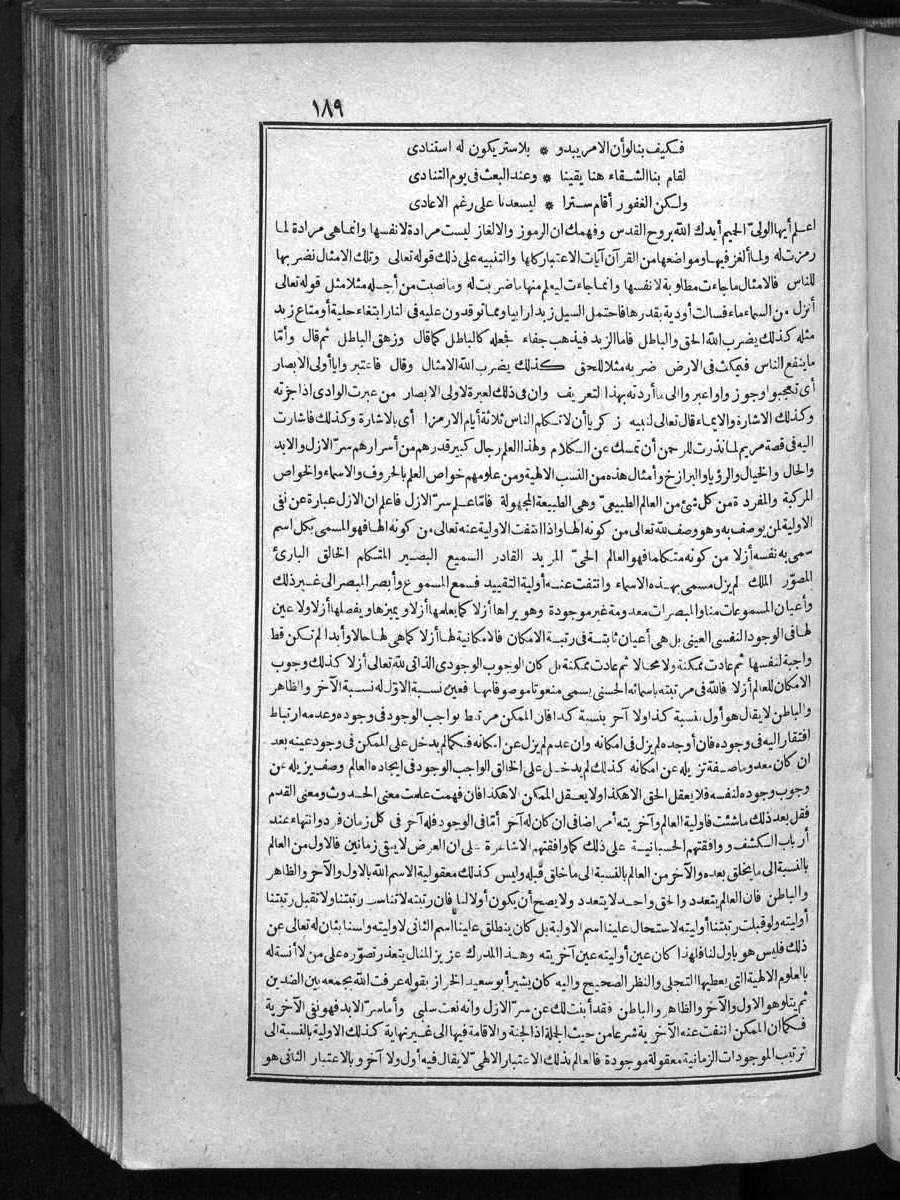 ١٨٩
فكيف بنا لو أن الامر يبدو * بلا ستر يكون له استنادى
لقام بنا الشقاء هنا يقينا * وعند البعث فى يوم التنادى
ولكن الغفور أقام سترا * ليسعدنا على رغم الاعادى
اعلم أيها الولىّ الحميم أيدك الله بروح القدس وفهمك ان الرموز والالغاز ليست مرادة لانفسها وانما هى مرادة لما
رمزت له ولما ألغز فيها ومواضعها من القرآن آيات الاعتبار كلها والتنبيه على ذلك قوله تعالى وتلك الامثال نضربها
للناس فالامثال ما جاءت مطلوبة لانفسها وانما جاءت ليعلم منها ما ضربت له وما نصبت من أجله مثلا مثل قوله تعالى
أنزل من السماء ماء فسالت أودية بقدرها فاحتمل السيل زبدا رابيا ومما توقدون عليه فى النار ابتغاء حلية أو متاع زبد
مثله كذلك يضرب الله الحق والباطل فاما الزبد فيذهب جفاء فجعله كالباطل كما قال وزهق الباطل ثم قال وأمّا
ما ينفع الناس فيمكث فى الارض ضربه مثلا للحق كذلك يضرب الله الامثال وقال فاعتبروا يا أولى الابصار
أى تعجبوا وجوزوا واعبروا الى ما أردته بهذا التعريف وان فى ذلك لعبرة لاولى الابصار من عبرت الوادى اذا جزته
وكذلك الاشارة والايماء قال تعالى لنبيه زكريا أن لا تكلم الناس ثلاثة أيام الا رمزا أى بالاشارة وكذلك فاشارت
اليه فى قصة مريم لما نذرت للرحمن أن تمسك عن الكلام ولهذا العلم رجال كبير قدرهم من أسرارهم سرّ الازل والابد
والحال والخيال والرؤيا والبرازخ وأمثال هذه من النسب الالهية ومن علومهم خواص العلم بالحروف والاسماء والخواص
المركبة والمفردة من كل شئ من العالم الطبيعىّ وهى الطبيعة المجهولة فامّا علم سرّ الازل فاعلم ان الازل عبارة عن نفى
الاولية لمن يوصف به وهو وصف لله تعالى من كونه الها واذا انتفت الاولية عنه تعالى من كونه الها فهو المسمى بكل اسم
سمى به نفسه أزلا من كونه متكلما فهو العالم الحىّ المريد القادر السميع البصير المتكلم الخالق البارئ
المصوّر الملك لم يزل مسمى بهذه الاسماء وانتفت عنه أولية التقييد فسمع المسموع وأبصر المبصر الى غير ذلك
وأعيان المسموعات منا والمبصرات معدومة غير موجودة وهو يراها أزلا كما يعلمها أزلا ويميزها ويفصلها أزلا ولا عين
لها فى الوجود النفسى العينى بل هى أعيان ثابتة فى رتبة الامكان فالامكانية لها أزلا كما هى لها حالا وأبدا لم تكن قط
واجبة لنفسها ثم عادت ممكنة ولا محالا ثم عادت ممكنة بل كان الوجوب الوجودى الذاتى لله تعالى أزلا كذلك وجوب
الامكان للعالم أزلا فالله فى مرتبته باسمائه الحسنى يسمى منعوتا موصوفا بها فعين نسبة الاوّل له نسبة الآخر والظاهر
والباطن لا يقال هو أول بنسبة كذا ولا آخر بنسبة كذا فان الممكن مرتبط بواجب الوجود فى وجوده وعدمه ارتباط
افتقار اليه فى وجوده فان أوجده لم يزل فى امكانه وان عدم لم يزل عن امكانه فكما لم يدخل على الممكن فى وجود عينه بعد
ان كان معدوما صفة تزيله عن امكانه كذلك لم يدخل على الخالق الواجب الوجود فى ايجاده العالم وصف يزيله عن
وجوب وجوده لنفسه فلا يعقل الحق الا هكذا ولا يعقل الممكن الا هكذا فان فهمت علمت معنى الحدوث ومعنى القدم
فقل بعد ذلك ما شئت فاولية العالم وآخريته أمر اضافى ان كان له آخر أمّا فى الوجود فله آخر فى كل زمان فرد وانتهاء عند
أرباب الكشف ووافقتهم الحسبانية على ذلك كما وافقتهم الاشاعرة على ان العرض لا يبقى زمانين فالاول من العالم
بالنسبة الى ما يخلق بعده والآخر من العالم بالنسبة الى ما خلق قبله وليس كذلك معقولية الاسم الله بالاول والآخر والظاهر
والباطن فان العالم يتعدد والحق واحد لا يتعدد ولا يصح أن يكون أولا لنا فان رتبته لا تناسب رتبتنا ولا تقبل رتبتنا
أوليته ولو قبلت رتبتنا أوليته لاستحال علينا اسم الاولية بل كان ينطلق علينا اسم الثانى لاوليته ولسنا بثان له تعالى عن
ذلك فليس هو باول لنا فلهذا كان عين أوليته عين آخريته وهذا المدرك عزيز المنال يتعذر تصوّره على من لا أنسة له
بالعلوم الالهية التى يعطيها التجلى والنظر الصحيح واليه كان يشير أبو سعيد الخراز بقوله عرفت الله بجمعه بين الضدين
ثم يتلو هو الاول والآخر والظاهر والباطن فقد أبنت لك عن سرّ الازل وانه نعت سلبى وأما سرّ الابد فهو نفى الآخرية
فكما ان الممكن انتفت عنه الآخرية شرعا من حيث الجملة اذ الجنة والاقامة فيها الى غير نهاية كذلك الاولية بالنسبة الى
ترتيب الموجودات الزمانية معقولة موجودة فالعالم بذلك الاعتبار الالهىّ لا يقال فيه أول ولا آخر وبالاعتبار الثانى هو